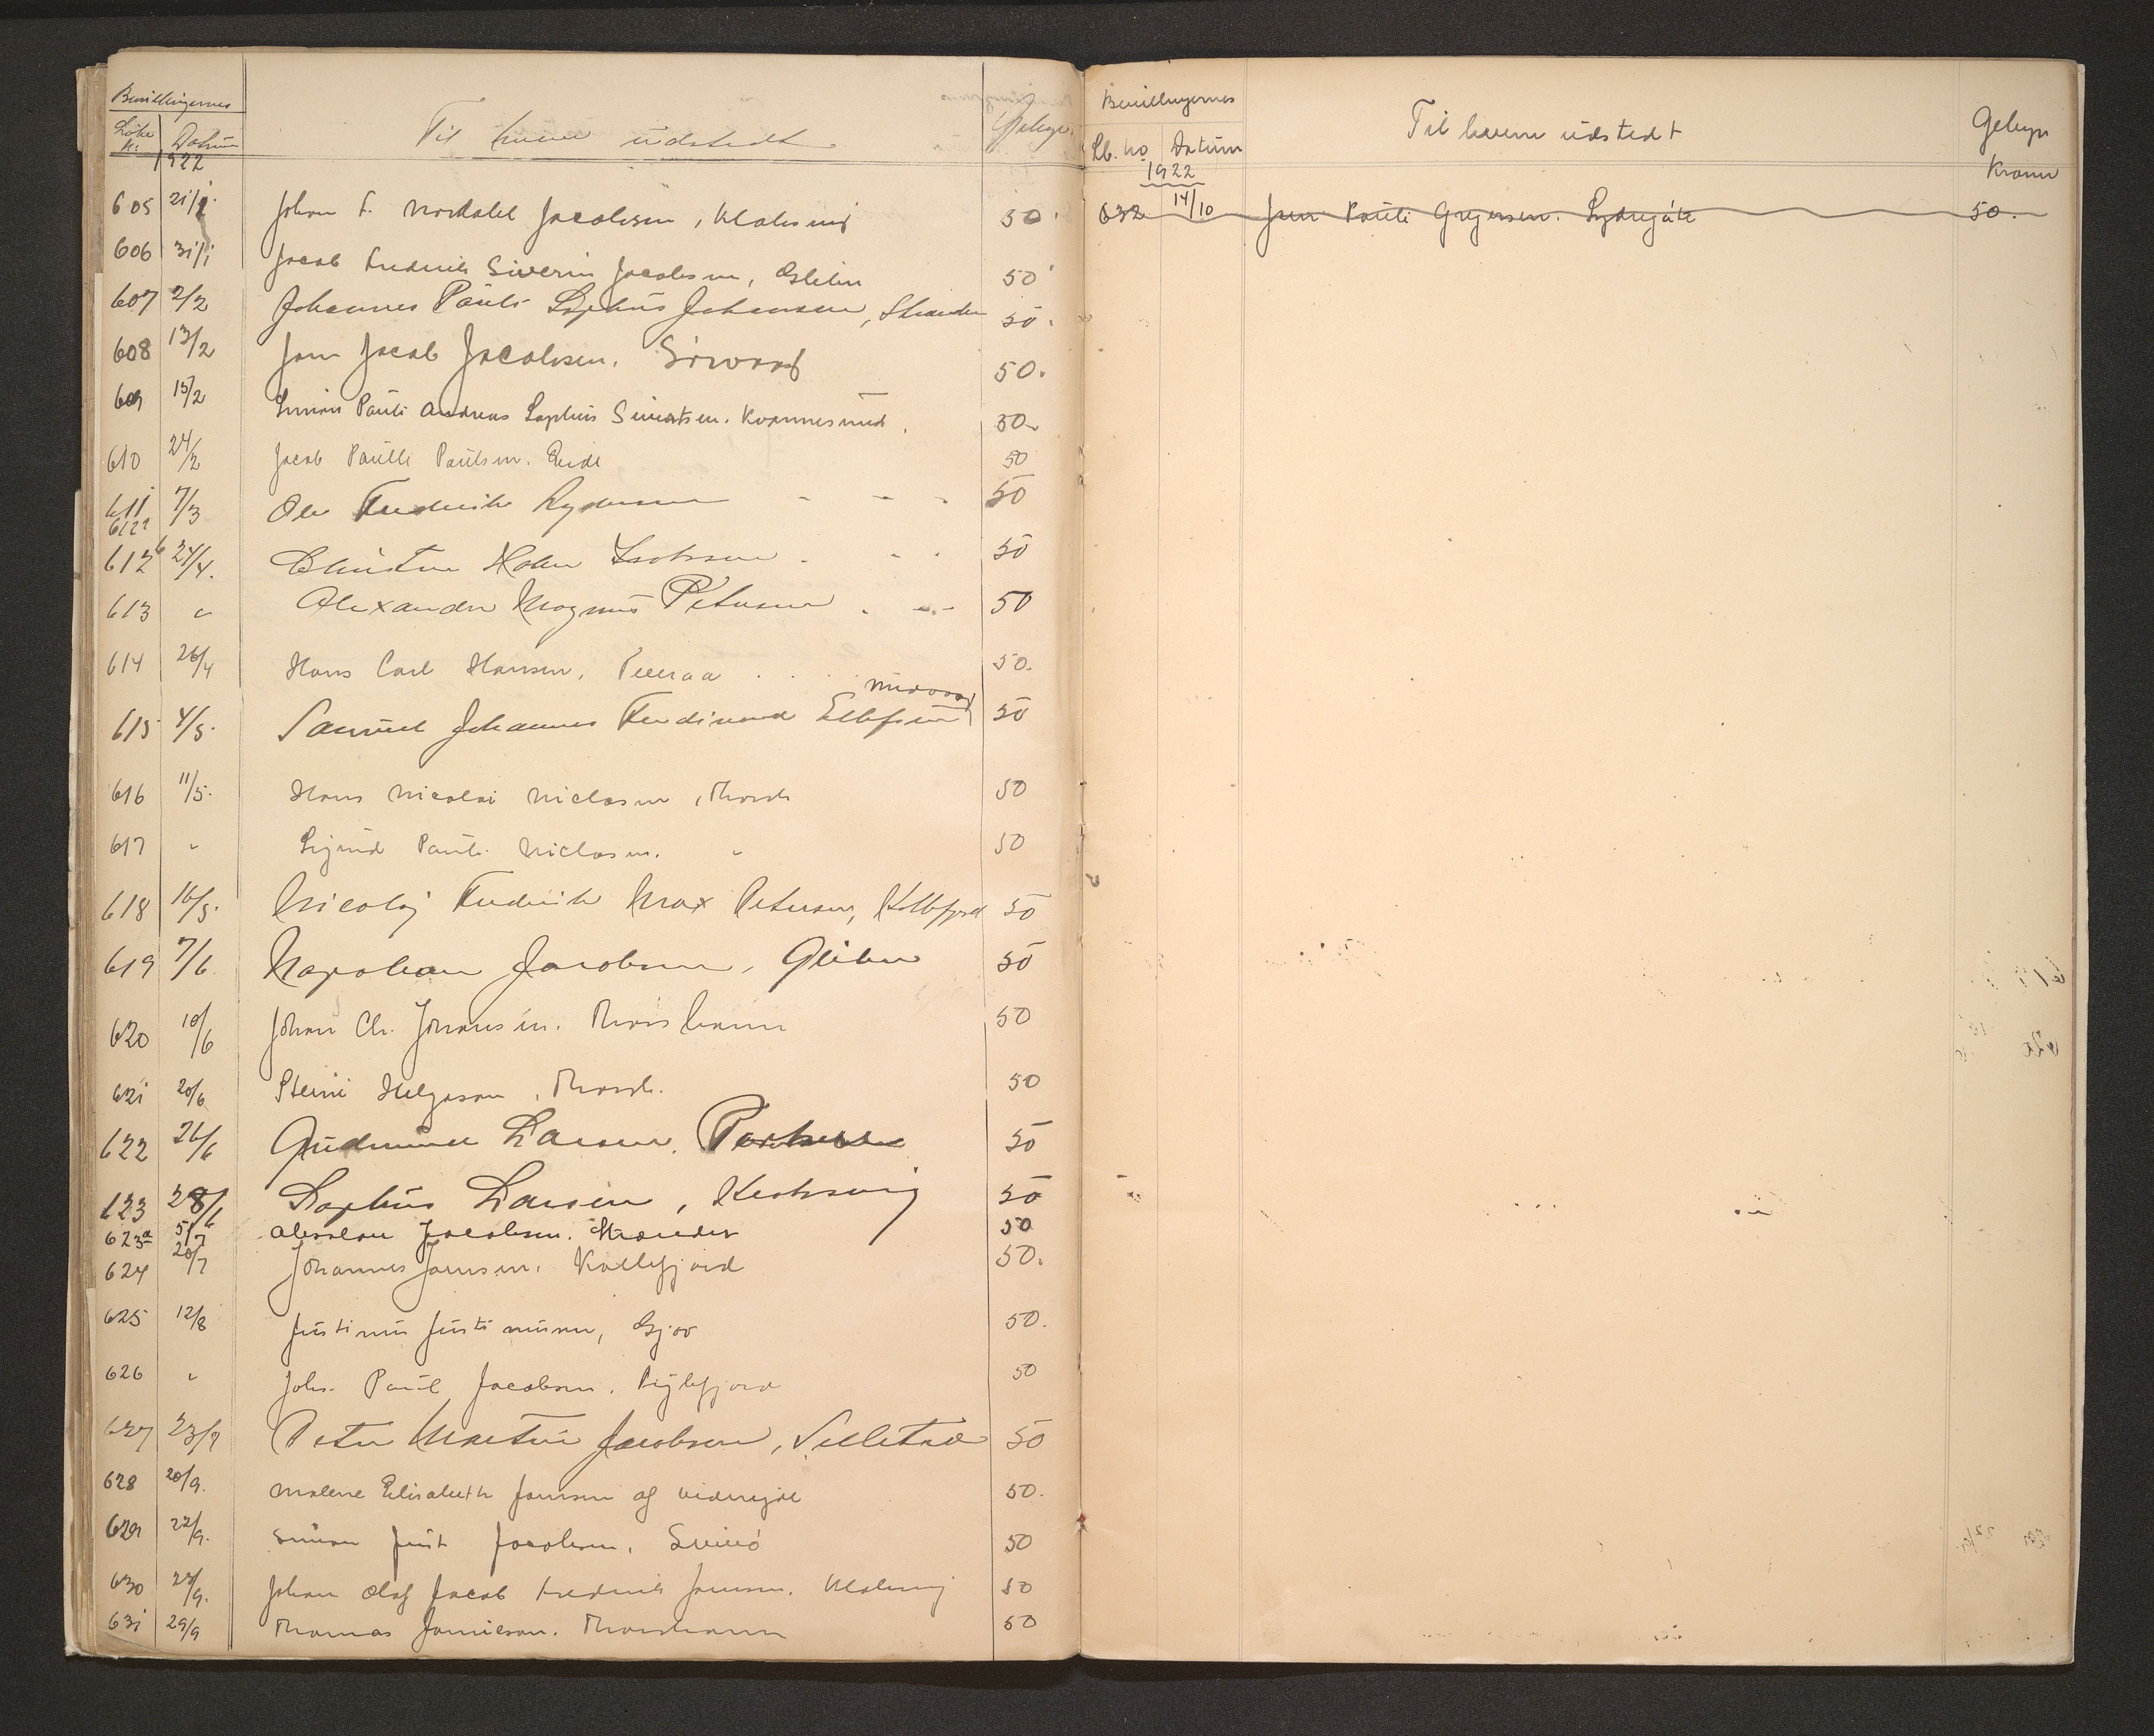 Bevillingernes
Løbe Nr. Datum Til hvem udstedt. Gebyr.
1922
605 21/1. Johan F. Nordahl Jacobsen, Klaksvig 50.
606 31/1 Jacob Frederik Siverin Jacobsen, Glibre 50
607 2/2 Johannes Pauli Sophus Johansen, Strander 50.
608 13/2 Jens Jacob Jacobsen. Sørvaag 50.
609 15/2 Simon Pauli Andreas Sophus Sivertsen. Kvannesund. 50.
610 24/2 Jacob Paulli Poulsen. Eide 50
611 7/3 Ole Frederik 50
612a
612b 24/4. Christen Holm Isaksen 50
613 " Alexander Magnus Petersen 50
614 26/4 Hans Carl Hansen, 50.
Midvaag
615 4/5. Samuel Johannes Ferdinand Ellefsen 50
616 11/5. Hans Nicolai Niclasen, Thorsh 50
617 " Sigurd Pauli Niclasen. " 50
618 16/5. Nicolaj Frederik Max Petersen, Kollefjord 50
619 7/6 Napolean Jacobsen, Glibre 50
620 10/6 Johan Ch. Joensen. Thorshavn 50
621 20/6 Steini Helgason, Thorsh. 50
622 26/6 Gudmund Larsen. 50
623 28/6 Sophus Larsen, 50
623a 5/7 Absalon Jacobsen. Strander 50
624 20/7 Johannes Joensen. Kollefjord 50.
625 12/8 Justinus Justinussen, Gjov 50.
626 " Johs. Paul Jacobsen. Fuglefjord 50
627 23/9 Peter Martin Jacobsen, Selletræ 50
628 20/9. Malene Elisabeth Joensen af Viderejde 50.
629 22/9. Simon Just Jacobsen. Svinø 50
630 27/9. Johan Olaf Jacob Frederik Joensen. Klaksvig 50
631 29/9 Thomas Jamieson. Thorshavn 50
Bevillingernes
Lb. No Datum Til hvem udstedt Gebyr
1922 Kroner
632 14/10 Jens Pauli Gregersen. Sydregøte 50.